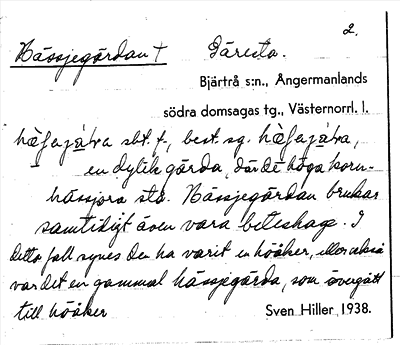 2.
Hässjegärdan † Däresta.
Bjärtrå s:n., Ångermanlands
södra domsagas tg., Västernorrl. l.
sbt. f., best. sg.
en dylik gärda, där de höga korn-
hässjora stå. Hässjegärdan brukar
samtidigt även vara beteshage. I
detta fall synes den ha varit en höåker, eller också
var det en gammal hässjegärda, som övergått
till höåker
Sven Hiller, 1938.